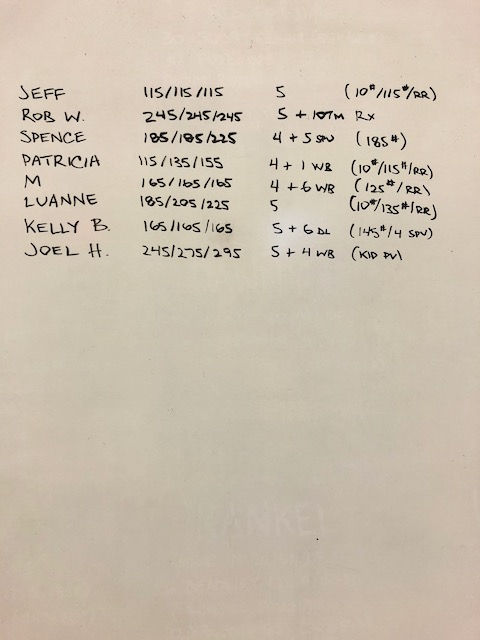 JEFF 115/115/115 5 (10#/115#/RR)
ROB W. 245/245/245 5 + 107M RX
SPENCE 185/185/225 4 + 5 SPU (185#)
PATRICIA 115/135/155 4 + 1 WB (10#/115#/RR)
M 165/165/165 4 + 6 WB (125#/RR)
LUANNE 185/205/225 5 (10#/135#/RR)
KELLY B. 165/165/165 5 + 6 DL (145#/4 SPU)
JOEL H. 245/275/295 5 + 4 WB (KIP PU)